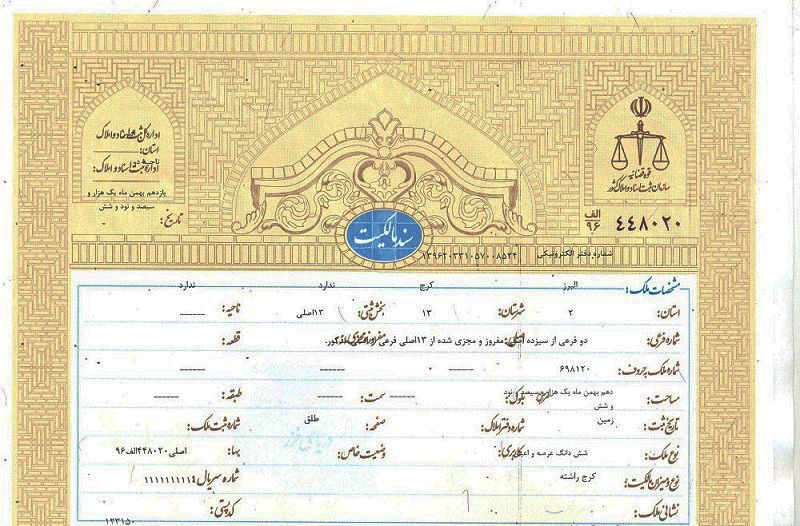 اداره کل ثبت اسناد و املاک
استان:
اداره ثبت اسناد و املاک:
یازدهم بهمن ماه یک هزار و
سیصد و نود و شش
تاریخ:
قوه قضائیه
سازمان ثبت اسناد و املاک کشور
الف
۹۶
۴۴۸۰۲۰
سند مالکیت
شماره دفتر الکترونیکی
۱۳۹۶۲۰۳۳۱۰۵۷۰۰۸۵۲۴
مشخصات ملک:
البرز کرج ندارد ندارد
استان: ۲ شهرستان: ۱۳ بخش ثبتی: ۱۳اصلی ناحیه: ------
شماره فرعی: دو فرعی از سیزده مفروز و مجزی شده از ۱۳اصلی فرعی قطعه:
شماره ملک به حروف: ۶۹۸۱۲۰ ------ ------ ------
مساحت: دهم بهمن ماه یک هزار و سیصد و نود
و شش ------ سمت: ------ طبقه: ------
تاریخ ثبت: زمین شماره دفتر املاک: صفحه: طلق شماره ثبت ملک:
نوع ملک: شش دانگ عرصه و کاربری: وضعیت خاص: بها: اصلی۴۴۸۰۲۰الف۹۶
نوع و میزان مالکیت: کرج راشته شماره سریال: ۱۱۱۱۱۱۱۱۱۴
نشانی ملک: کد پستی:
۱۲۳۱۵۰